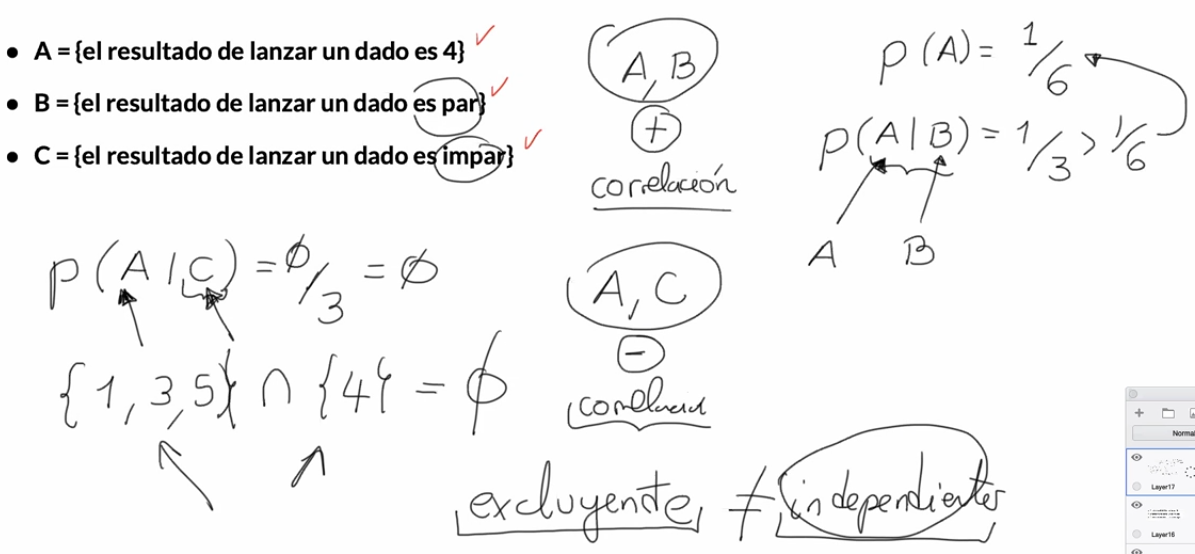 • A = {el resultado de lanzar un dado es 4}
• B = {el resultado de lanzar un dado es par}
• C = {el resultado de lanzar un dado es impar}
A, B
+
correlación
P(A) = 1/6
P(A|B) = 1/3 > 1/6
A B
P(A|C) = ∅/3 = ∅
{1, 3, 5} ∩ {4} = ∅
A, C
−
correlación
excluyente ≠ independientes
+
Normal
Layer17
Layer16